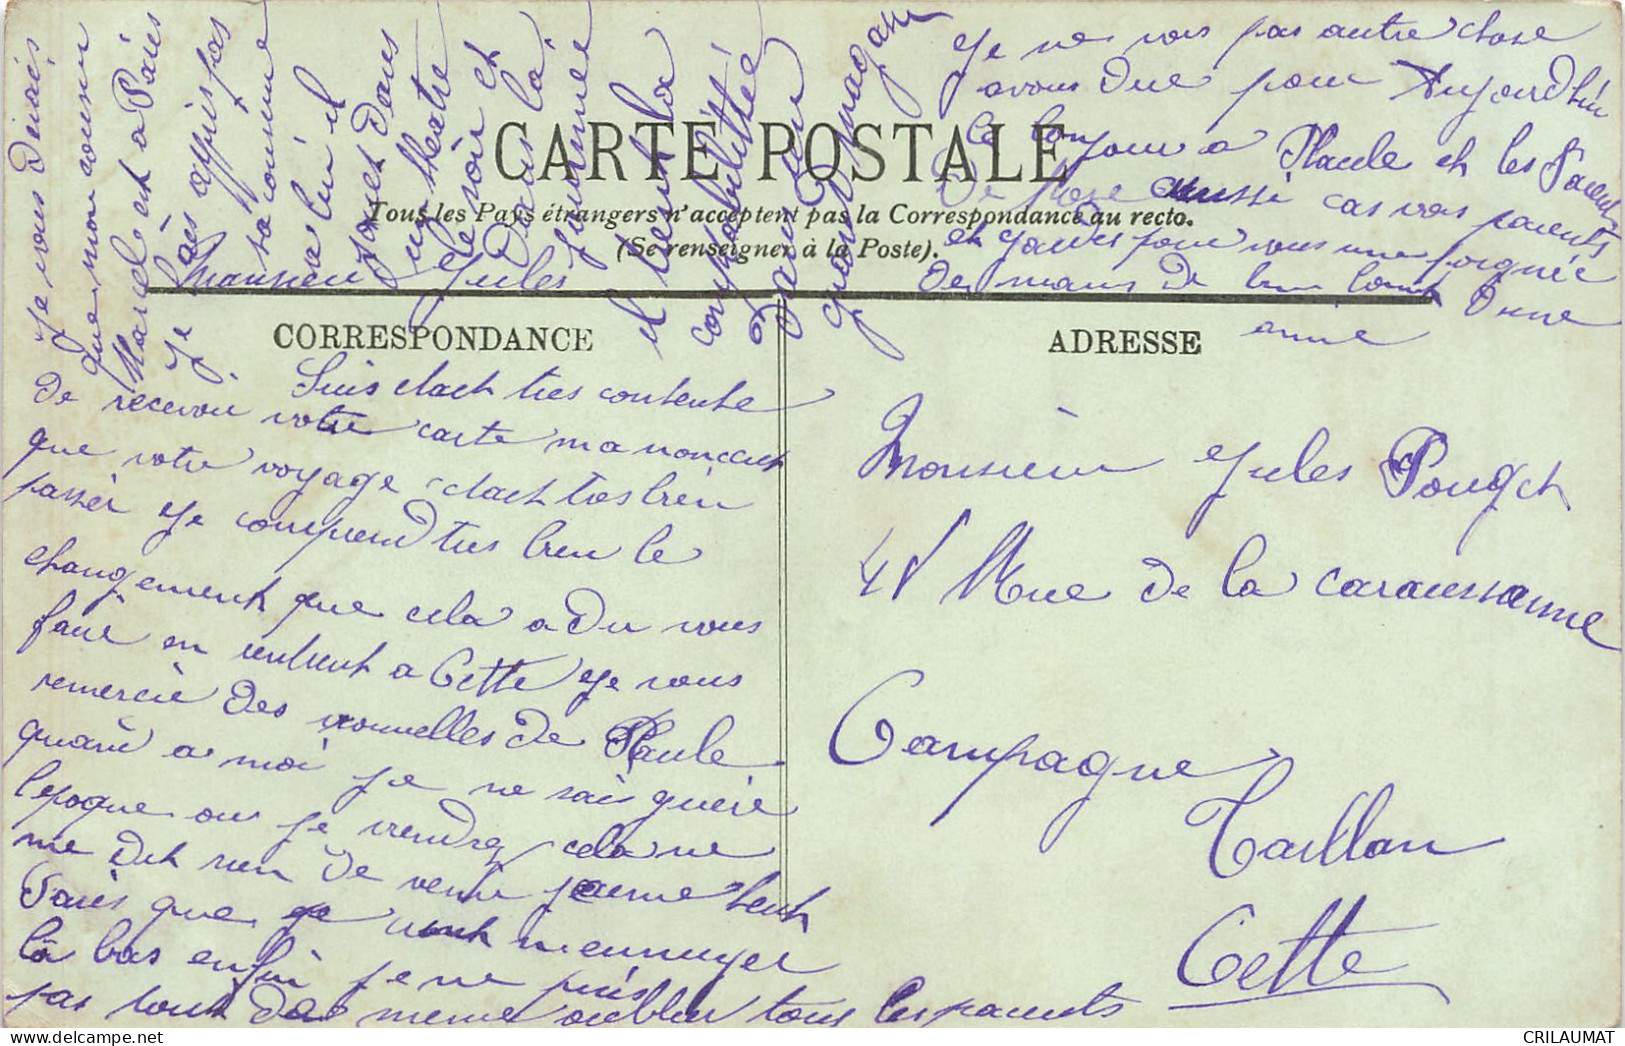 CARTE POSTALE
Tous les Pays étrangers n'acceptent pas la Correspondance au recto.
(Se renseigner à la Poste).
CORRESPONDANCE
ADRESSE
Monsieur Jules
Suis etact tres contente
de recevoir votre carte manoncent
que votre voyage etact tres bien
passer je comprend tres bien le
changement que cela a du vous
faire en rentrent a Cette je vous
remercie des nouvelles de Paule
quand a moi je ne sais guere
l'epoque ou je viendrez cela ne
me dit rien de venir jaime tent
Paris que je vent mennuyer
là bas enfin je ne puis
pas tout de meme oublier tous les parents
je vous dirais
que mon cousin
Marcel est a Paris
je sais appris pas
sa comme
a lui il
jouet dans
un theatre
le soir et
Dans la
journée
il tient la
comptabilitée
dans un
grand magasin
je ne vois pas autre chose
a vous dire pour Aujourdhui
le bonjour a Paule et les Parents
de Rose aussi cas vos parents
et gardes pour vous une poignée
de mains de bien loint d'une
amie
Monsieur Jules Pouget
48 Rue de la caraussanne
Campagne
Taillan
Cette
CRILAUMAT